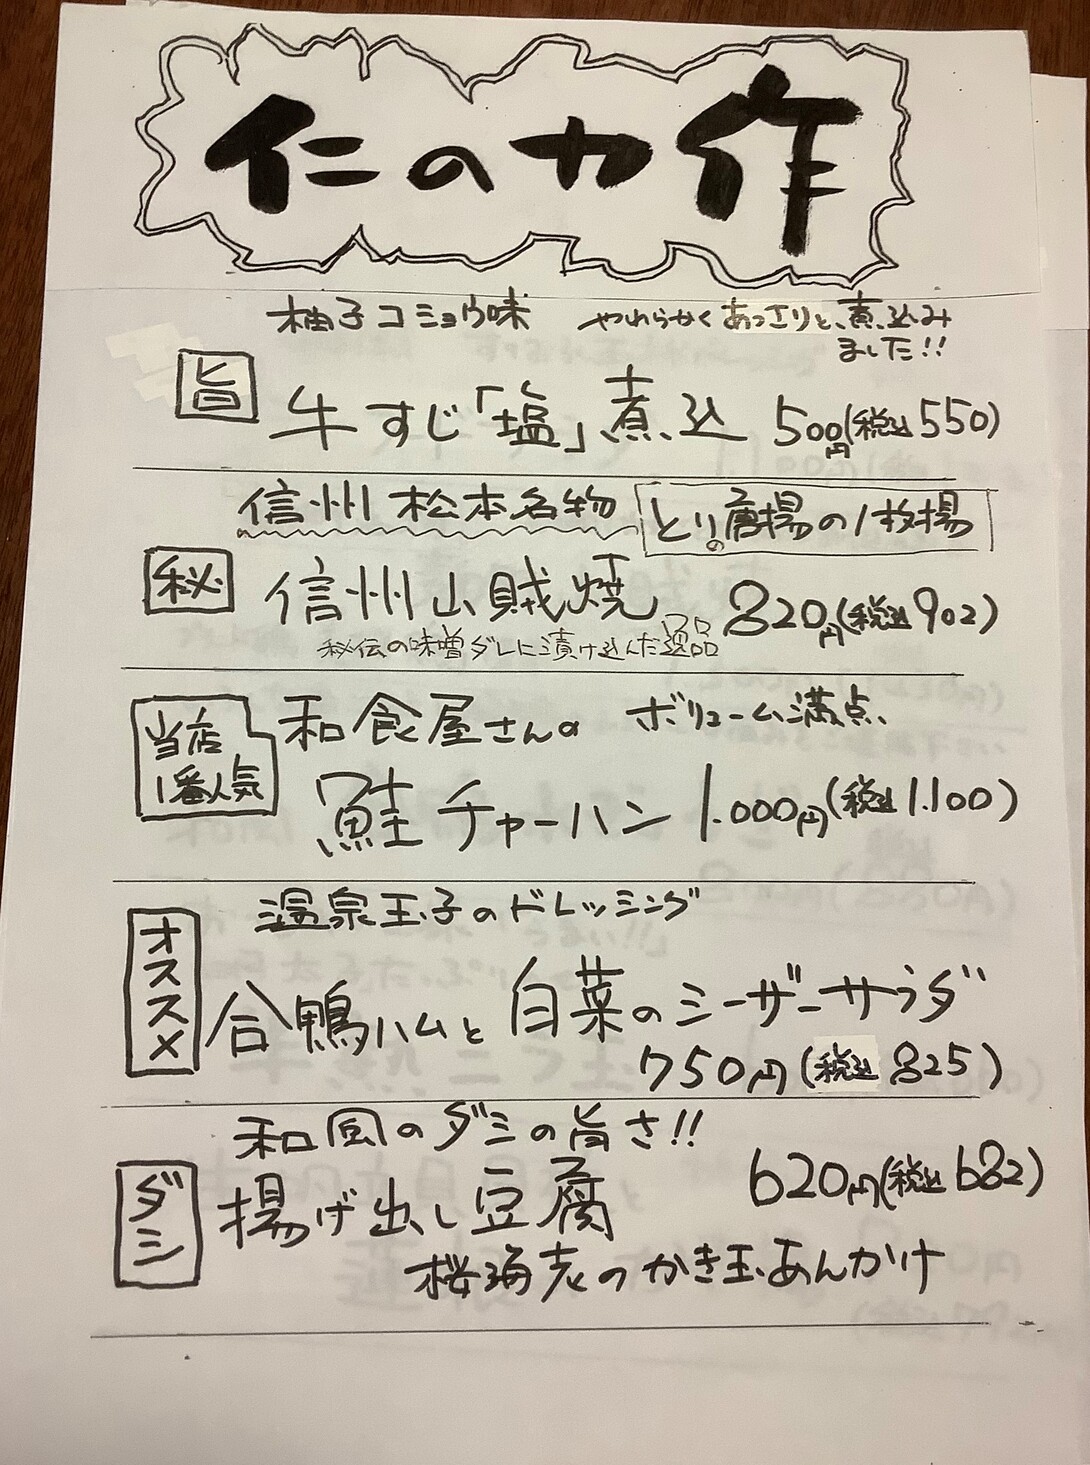 仁の力作
柚子コショウ味 やわらかくあっさりと、煮込み
ました!!
旨 牛すじ「塩」煮込 500円(税込550)
信州 松本名物 とりの唐揚の1枚揚
秘 信州山賊焼 820円(税込902)
秘伝の味噌ダレに漬け込んだ逸品
当店 和食屋さんの ボリューム満点、
1番人気 鮭チャーハン 1.000円(税込1.100)
温泉玉子のドレッシング
オススメ 合鴨ハムと白菜のシーザーサラダ
750円(税込825)
和風のダシの旨さ!!
ダシ 揚げ出し豆腐 620円(税込682)
桜海老のかき玉あんかけ